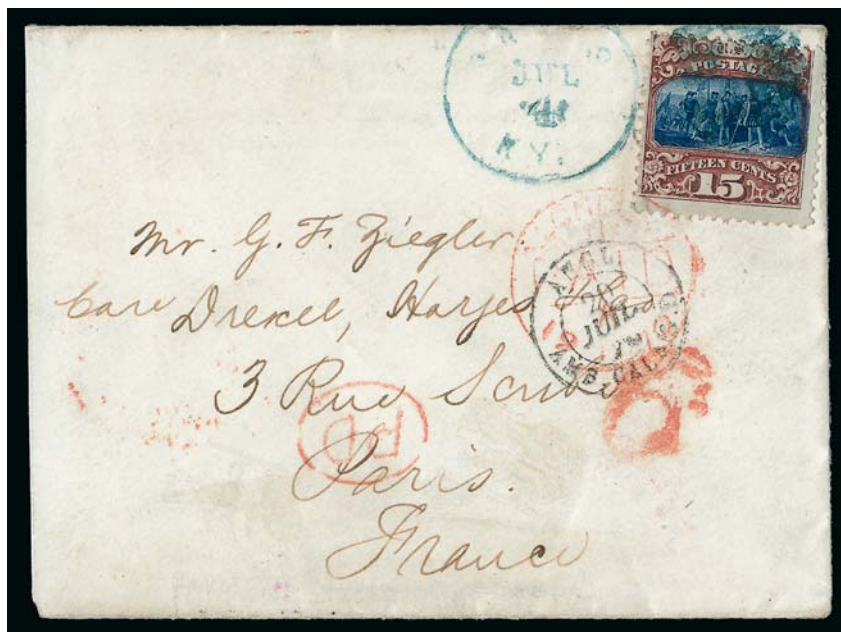 JUL
KY.
U.S.
POSTAGE
FIFTEEN CENTS
15
Mr. G. F. Ziegler.
Care Drexel, Harjes & Co
3 Rue Scribe
Paris.
France
ANGL.
20
JUIL
AMB. CALAIS
PD